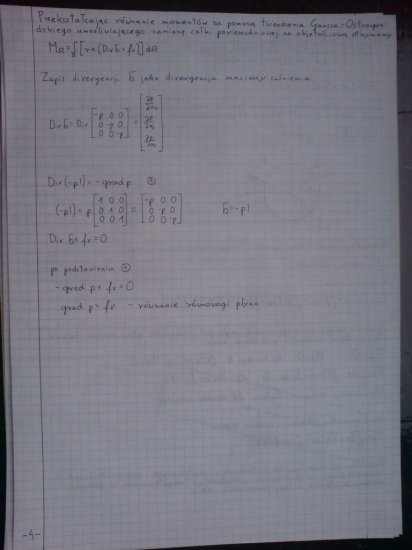 Przekształcając równanie momentów za pomocą twierdzenia Gaussa-Ostrogra-
dzkiego umożliwiającego zamianę całki powierzchniowej na objętościową otrzymamy
MΩ = ∫[r×(Divσ+fv)]dΩ
Zapis divergencji σ jako divergencja macierzy ciśnienia
Divσ = Div [-p 0 0; 0 -p 0; 0 0 -p] = [∂p/∂x1; ∂p/∂x2; ∂p/∂x3]
Div(-pI) = -grad p ①
(-pI) = p [1 0 0; 0 1 0; 0 0 1] = [-p 0 0; 0 -p 0; 0 0 -p] σ = -pI
Div σ + fv = 0
po podstawieniu ①
-grad p + fv = 0
grad p = fv - równanie równowagi płynu
-4-